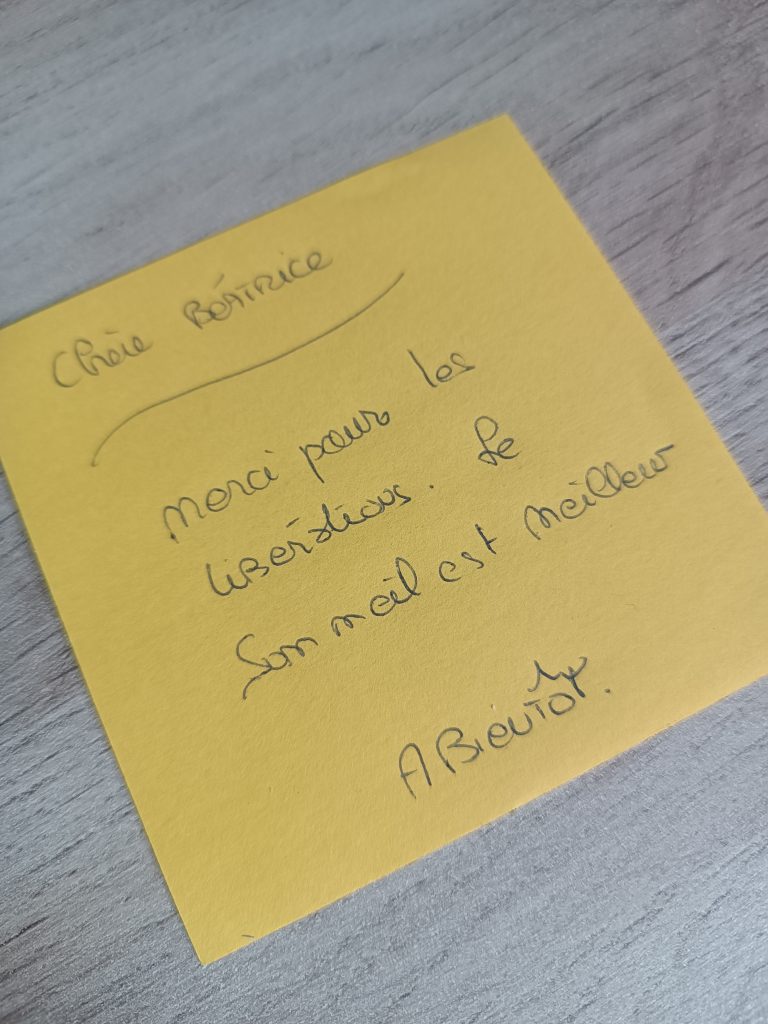 Chère BÉATRICE
Merci pour les
libérations. Le
Sommeil est meilleur
A BiENTÔT.